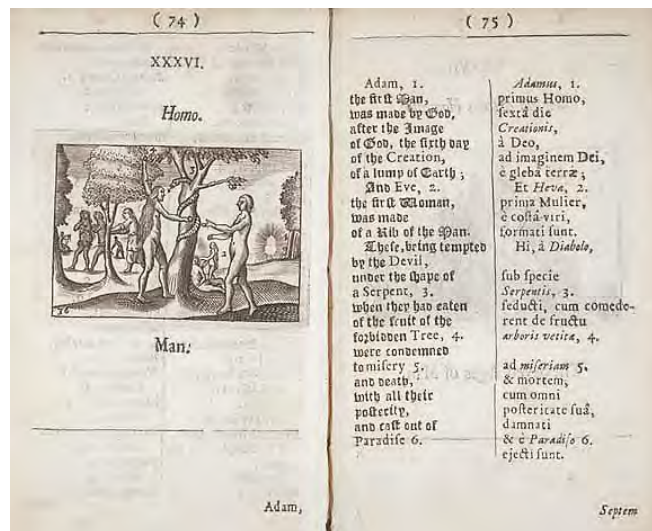 ( 74 )
XXXVI.
Homo.
36
Man.
Adam,
( 75 )
Adam, 1.
the firſt Man,
was made by God,
after the Image
of God, the ſixth day
of the Creation,
of a lump of Earth;
And Eve, 2.
the firſt Woman,
was made
of a Rib of the Man.
Theſe, being tempted
by the Devil,
under the ſhape of
a Serpent, 3.
when they had eaten
of the fruit of the
forbidden Tree, 4.
were condemned
to miſery 5.
and death,
with all their
poſterity,
and caſt out of
Paradiſe 6.
Adamus, 1.
primus Homo,
ſextâ die
Creationis,
à Deo,
ad imaginem Dei,
è gleba terræ;
Et Heva, 2.
prima Mulier,
è coſtâ viri,
formati ſunt.
Hi, à Diabolo,
ſub ſpecie
Serpentis, 3.
ſeducti, cum comede-
rent de fructu
arboris vetitæ, 4.
ad miſeriam 5.
& mortem,
cum omni
poſteritate ſuâ,
damnati
& è Paradiſo 6.
ejecti ſunt.
Septem